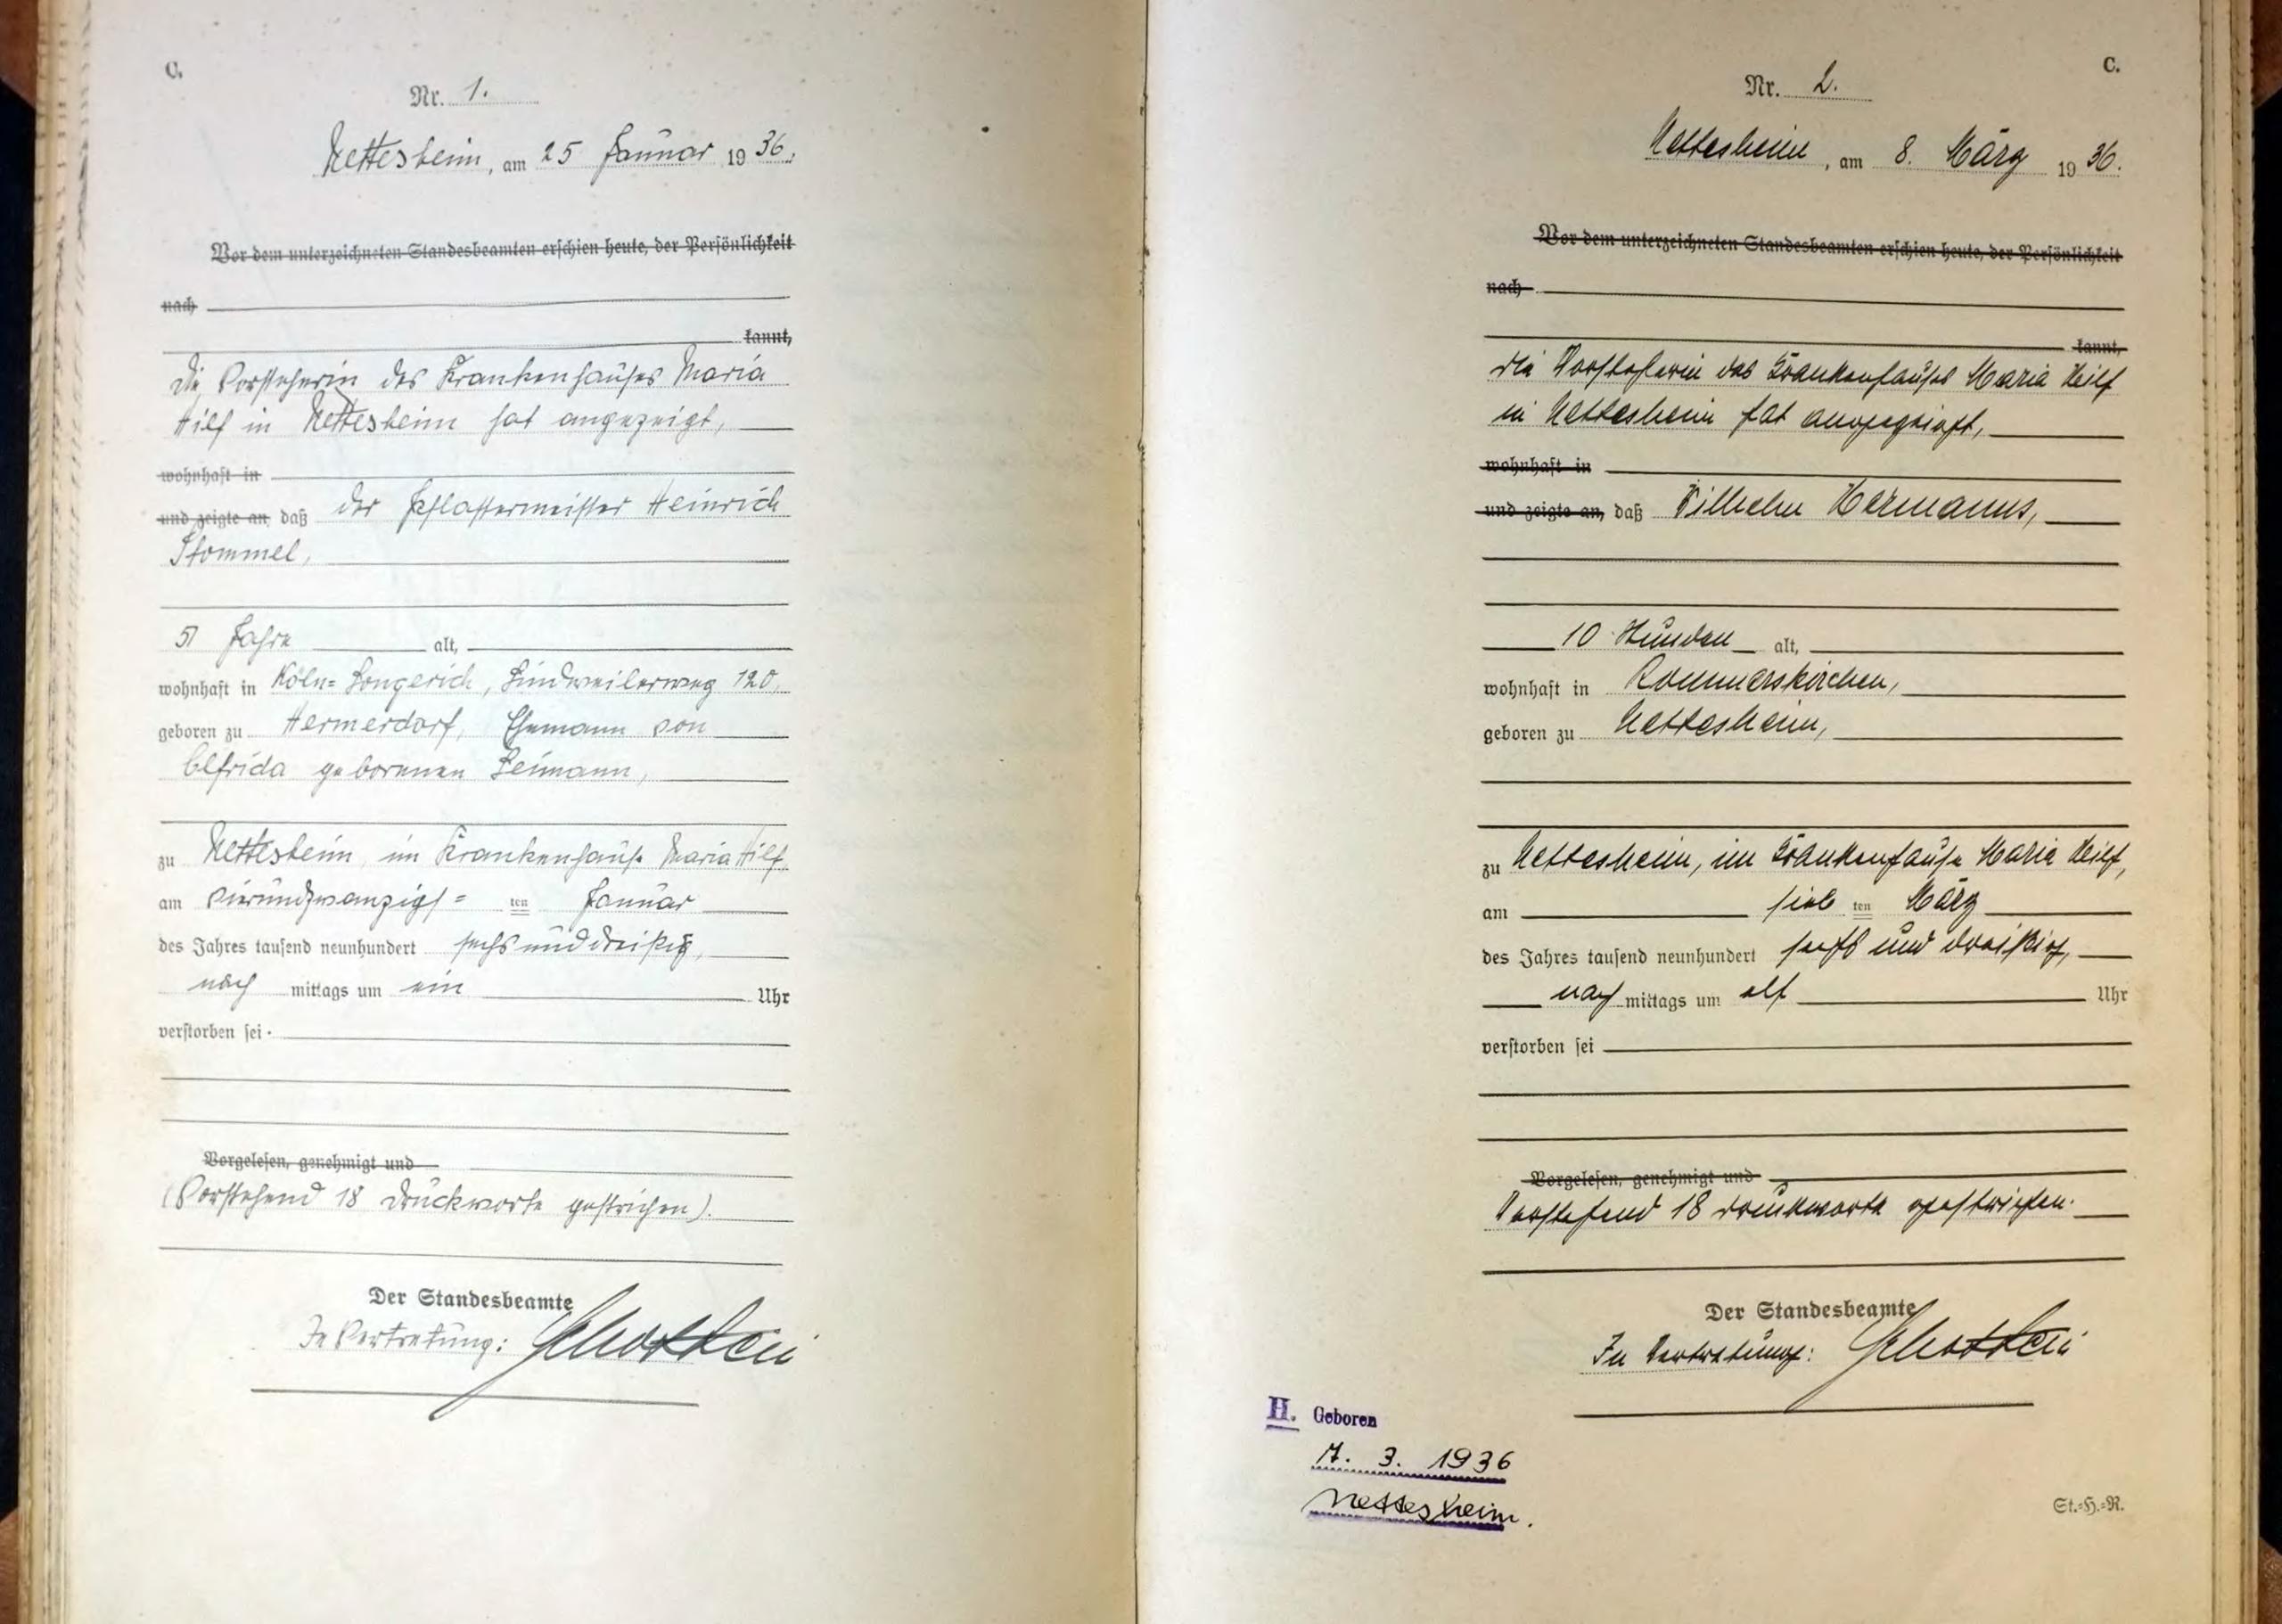 C.
Nr. 1.
Nettesheim, am 25 Januar 1936.
Vor dem unterzeichneten Standesbeamten erschien heute, der Persönlichkeit
nach
kannt,
Die Vorsteherin des Krankenhauses Maria
Hilf in Nettesheim hat angezeigt,
wohnhaft in
und zeigte an, daß der Pflastermeister Heinrich
Stommel,
51 Jahre alt,
wohnhaft in Köln-Longerich, Lindweilerweg 120,
geboren zu Hermerdorf, Ehemann von
Elfrida geborenen Leimann,
zu Nettesheim im Krankenhause Maria Hilf
am vierundzwanzigs-ten Januar
des Jahres tausend neunhundert sechs und dreißig,
nach mittags um ein Uhr
verstorben sei.
Vorgelesen, genehmigt und
(Vorstehend 18 Druckworte gestrichen).
Der Standesbeamte
In Vertretung:
C.
Nr. 2.
Nettesheim, am 8. März 1936.
Vor dem unterzeichneten Standesbeamten erschien heute, der Persönlichkeit
nach
kannt,
die Vorsteherin des Krankenhauses Maria Hilf
in Nettesheim hat angezeigt,
wohnhaft in
und zeigte an, daß Wilhelm Hermanns,
10 Stunden alt,
wohnhaft in Rommerskirchen,
geboren zu Nettesheim,
zu Nettesheim, im Krankenhause Maria Hilf,
am sieb ten März
des Jahres tausend neunhundert sechs und dreißig,
nach mittags um elf Uhr
verstorben sei
Vorgelesen, genehmigt und
Vorstehend 18 Druckworte gestrichen.
Der Standesbeamte
In Vertretung:
H. Geboren
7. 3. 1936
Nettesheim.
St.=H.=R.